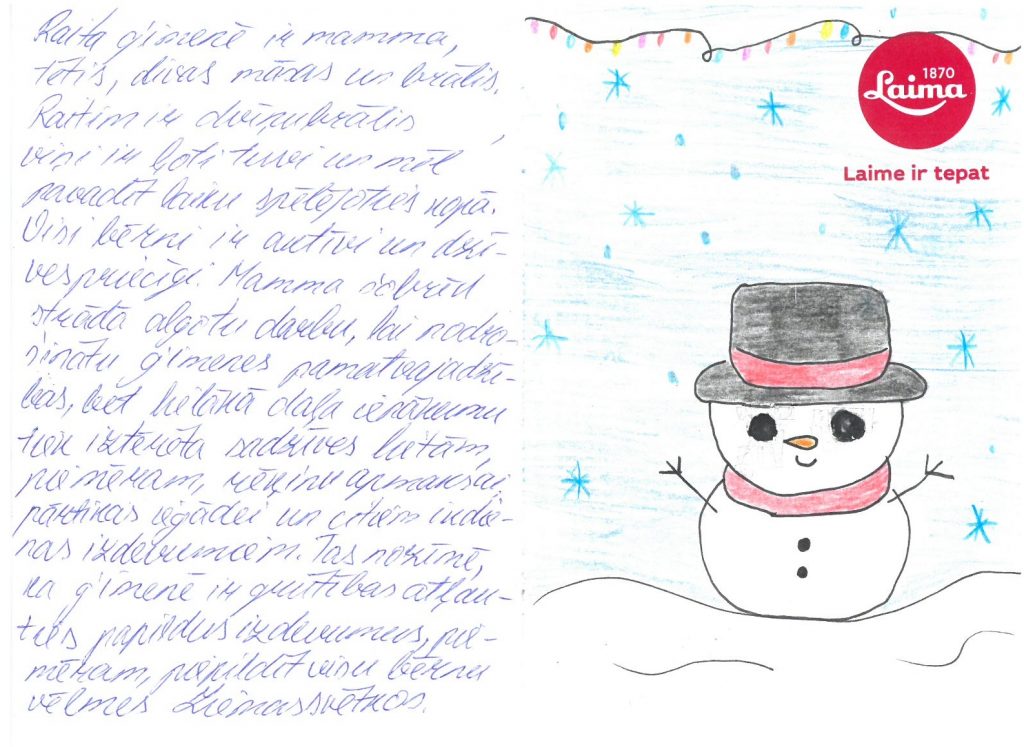 Raita ģimenē ir mamma,
tētis, divas māsas un brālis.
Raitim ir dvīņubrālis,
viņi ir ļoti tuvi un mīl
pavadīt laiku spēlējoties kopā.
Visi bērni ir aktīvi un dzī-
vespriecīgi. Mamma šobrīd
strādā algotu darbu, lai nodro-
šinātu ģimenes pamatvajadzī-
bas, bet lielākā daļa ienākumu
tiek iztērēta sadzīves lietām,
piemēram, rēķinu apmaksai,
pārtikas iegādei un citiem ikdie-
nas izdevumiem. Tas nozīmē,
ka ģimenē ir grūtības atļau-
ties papildus izdevumus, pie-
mēram, piepildīt visu bērnu
vēlmes Ziemassvētkos.
1870
Laima
Laime ir tepat